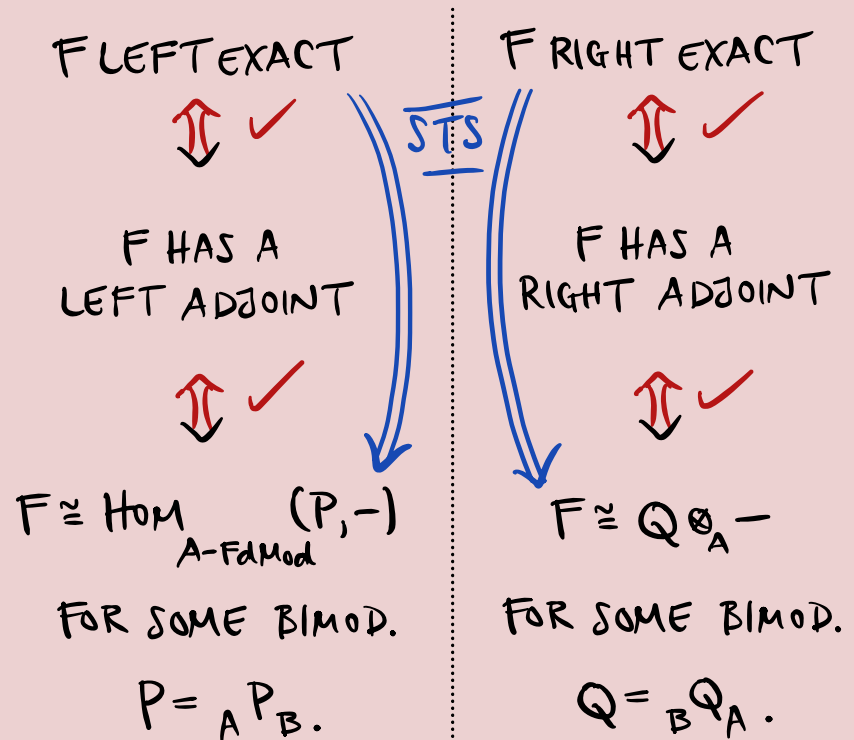 F LEFT EXACT
F HAS A
LEFT ADJOINT
F ≅ HOM_{A-FdMod} (P, -)
FOR SOME BIMOD.
P = _A P_B.
STS
F RIGHT EXACT
F HAS A
RIGHT ADJOINT
F ≅ Q ⊗_A -
FOR SOME BIMOD.
Q = _B Q_A.